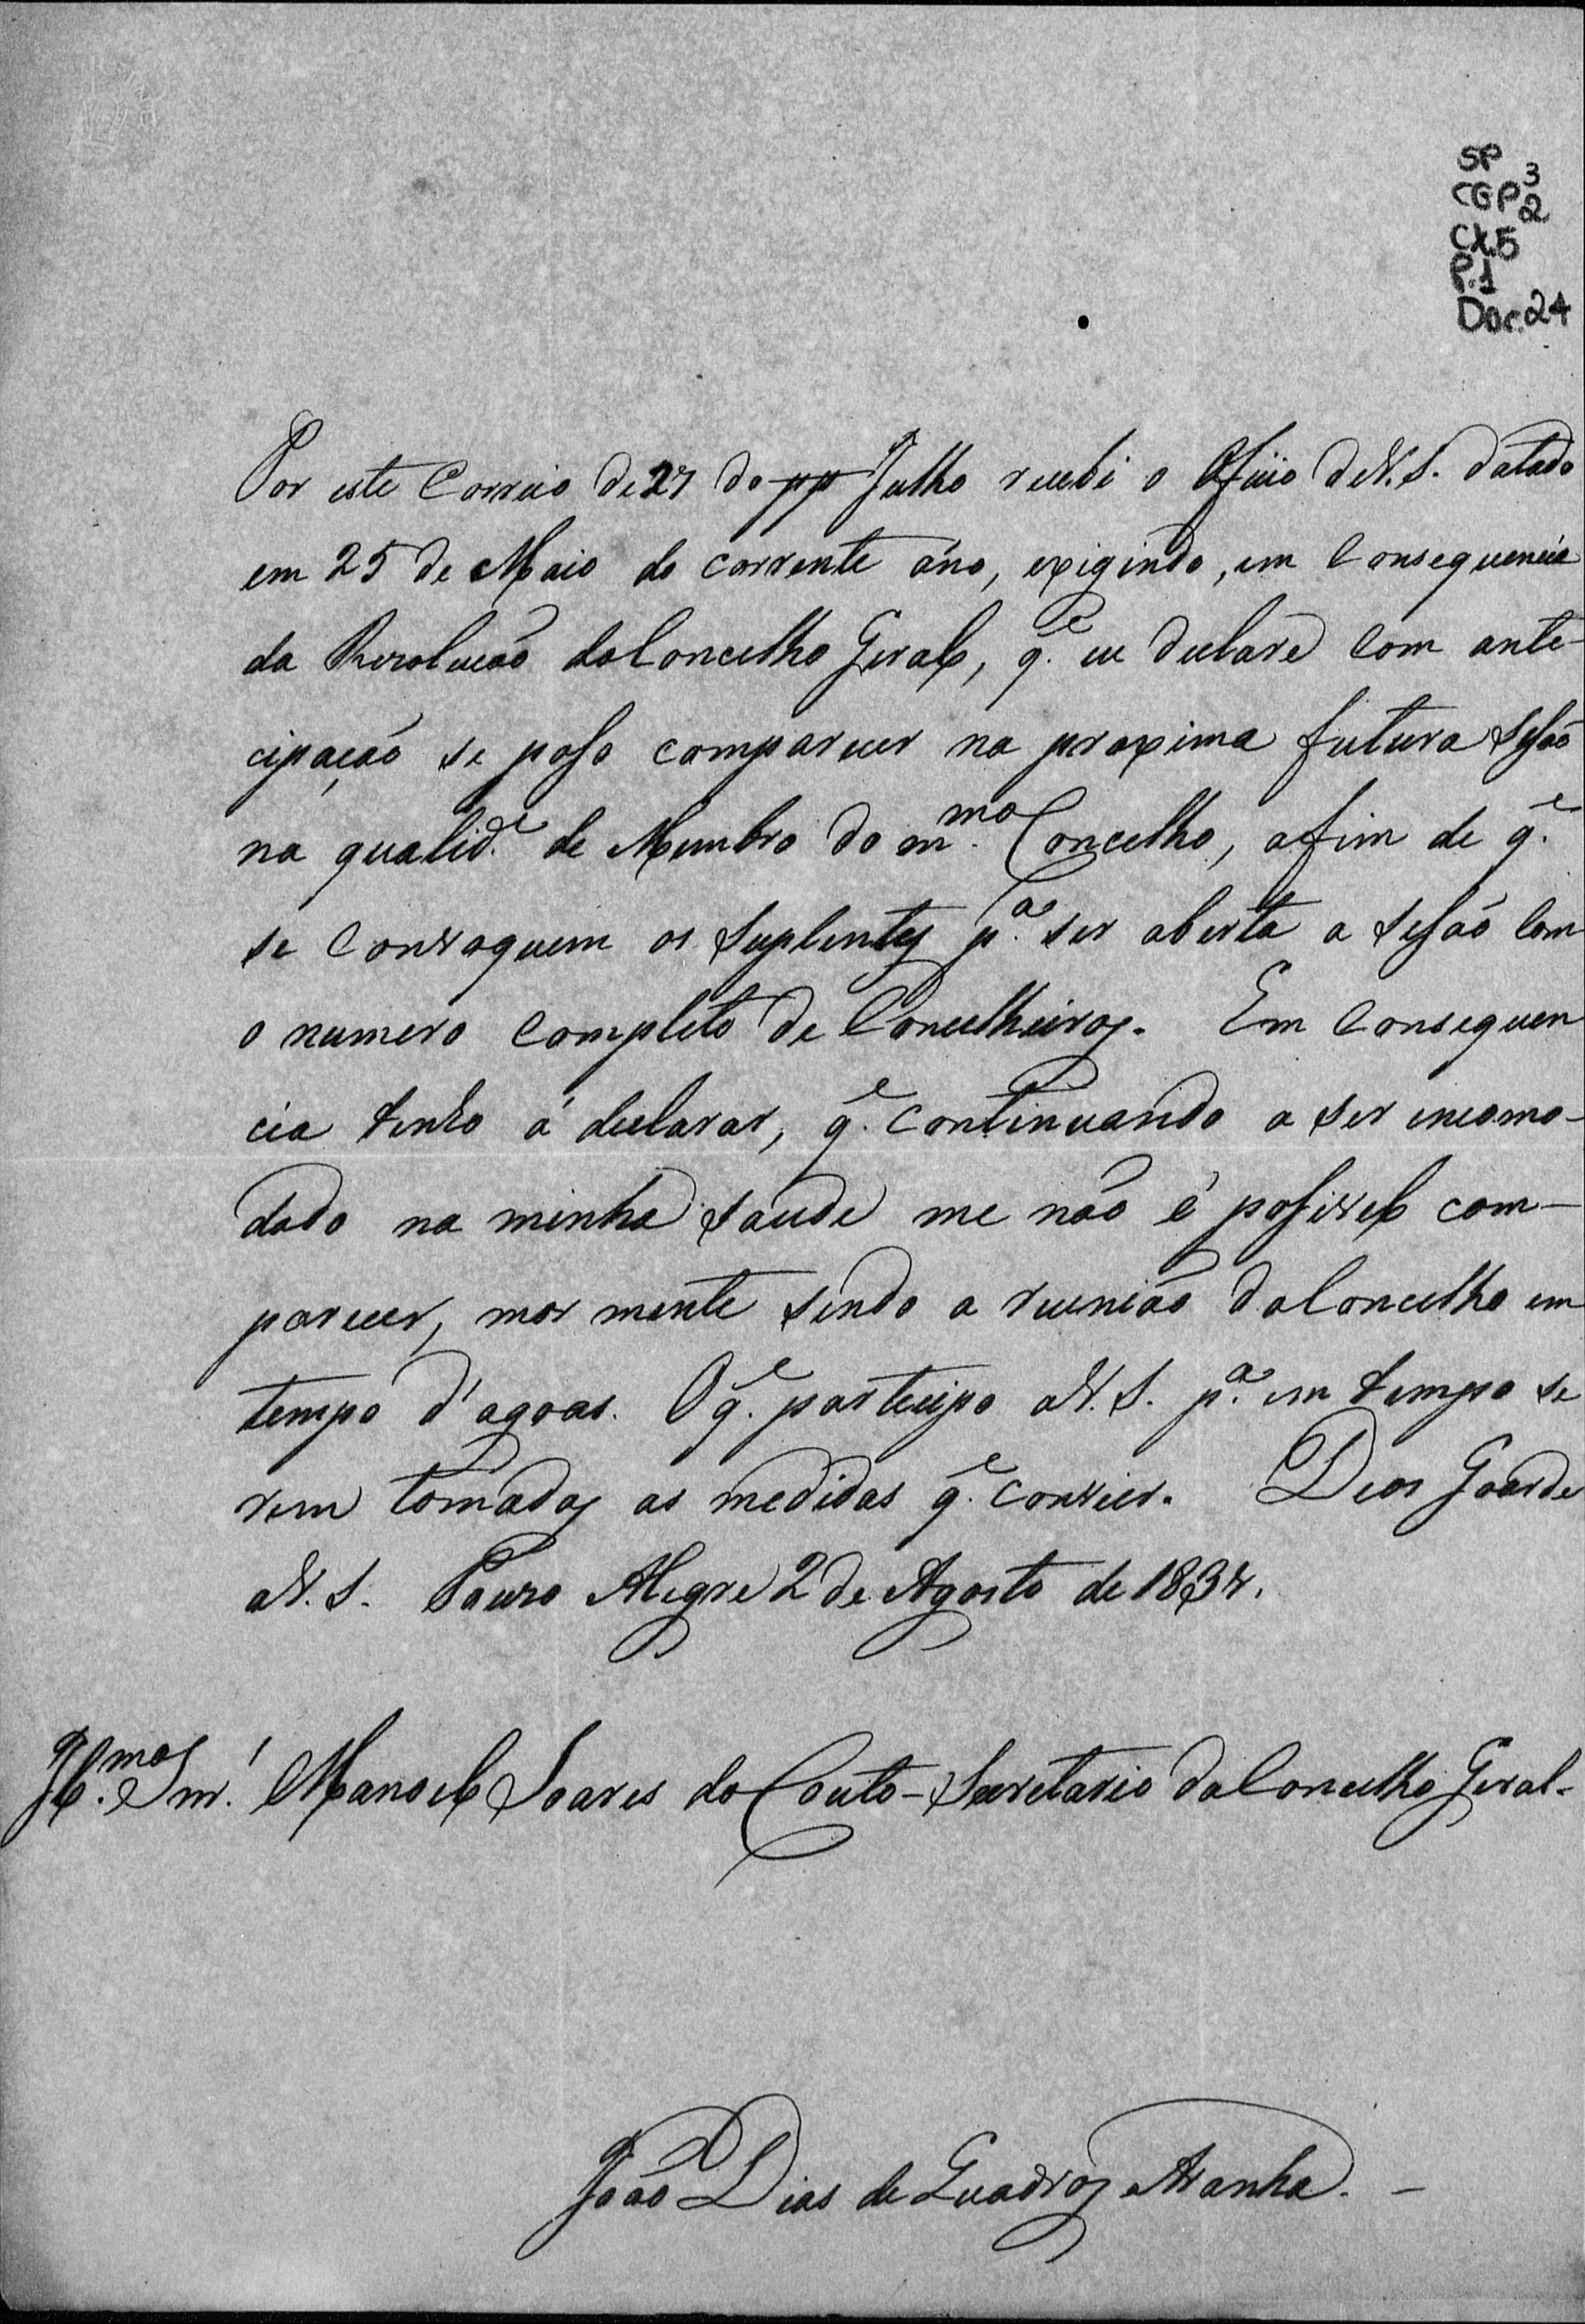 SP
CGP 3 2
CX.5
P.1
Doc. 24
Por este Correio de 27 do pp Julho recebi o Oficio de V. S. datado
em 25 de Maio do corrente áno, exigindo, em Consequencia
da Rezolucáo do Concelho Geral, q.e eu declare com ante-
cipaçáo se poso comparecer na proxima futura Sesáo
na qualid.e de Membro do m.mo Concelho, afim de q.e
se Convoquem os Suplentes p.a ser aberta a Sesáo Com
o numero Completo de Concelheiros. Em Consequen
cia tenho á declarar, q.e Continuando a ser incomo-
dado na minha saude me não é posivel com-
parecer, mor mente sendo a reunião do Concelho em
tempo d'agoas. O q.e participo a V. S. p.a em tempo se
rem tomadas as medidas q.e convier. Deos Goarde
a V. S. Pouzo Alegre 2 de Agosto de 1834.
Il.mo Snr.' Manoel Soares do Couto - Secretario do Concelho Geral.
João Dias de Quadros Aranha. -